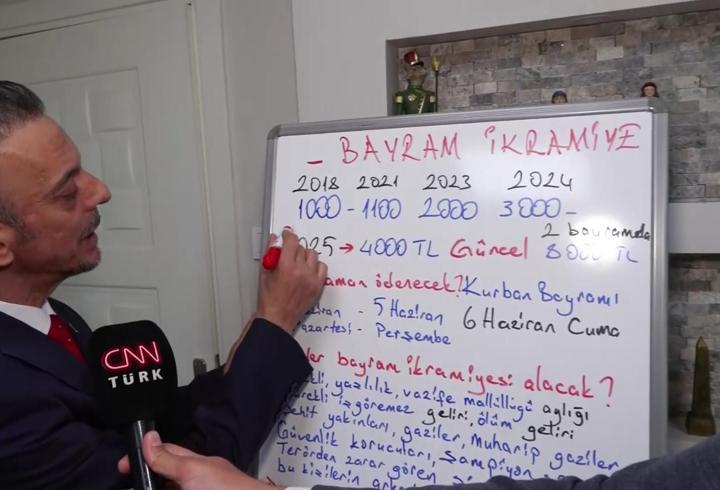 _ BAYRAM İKRAMİYE
2018 2021 2023 2024
1000 - 1100 2000 3000 -
2 bayramda
025 → 4000 TL Güncel 8000 TL
aman ödenecek? Kurban Bayramı
iran - 5 Haziran 6 Haziran Cuma
azartesi - Perşembe
ler bayram ikramiyesi alacak?
kli, yazlılık, vazife mallüllüğü aylığı
ürekli işgöremez geliri, ölüm geliri
şehit yakınları, gaziler, Muharip gaziler
Güvenlik korucuları, şampiyon
Terörden zarar gören
bu kişilerin
CNN
TÜRK